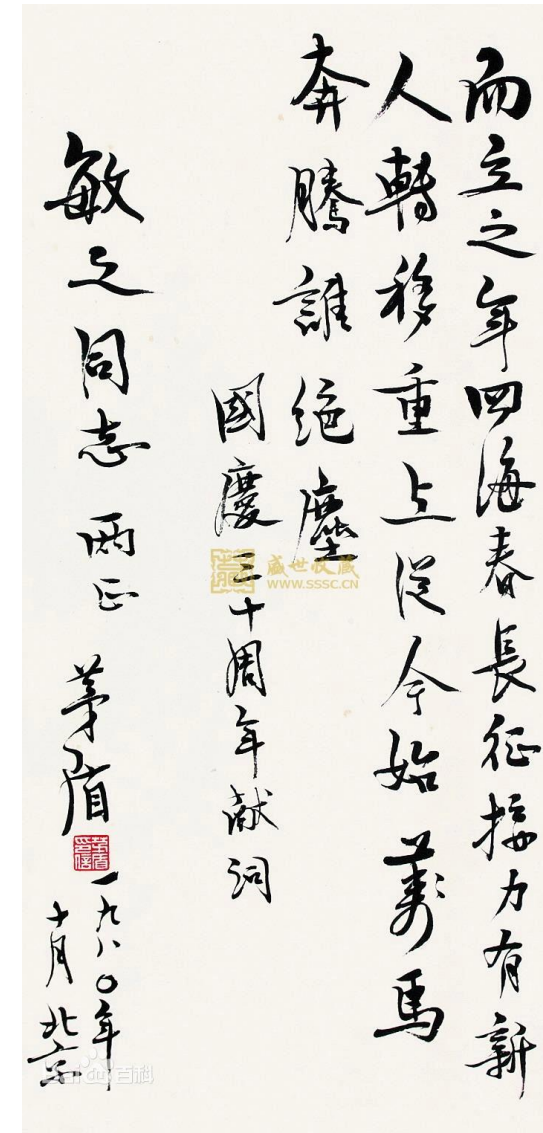 而立之年四海春長征接力有新
人轉移重点從今始萬馬
奔騰誰絕塵
國慶三十周年献詞
敏之同志 兩正 茅盾
茅盾印信
一九八〇年
十月北京
盛世收藏
WWW.SSSC.CN
Bai百科